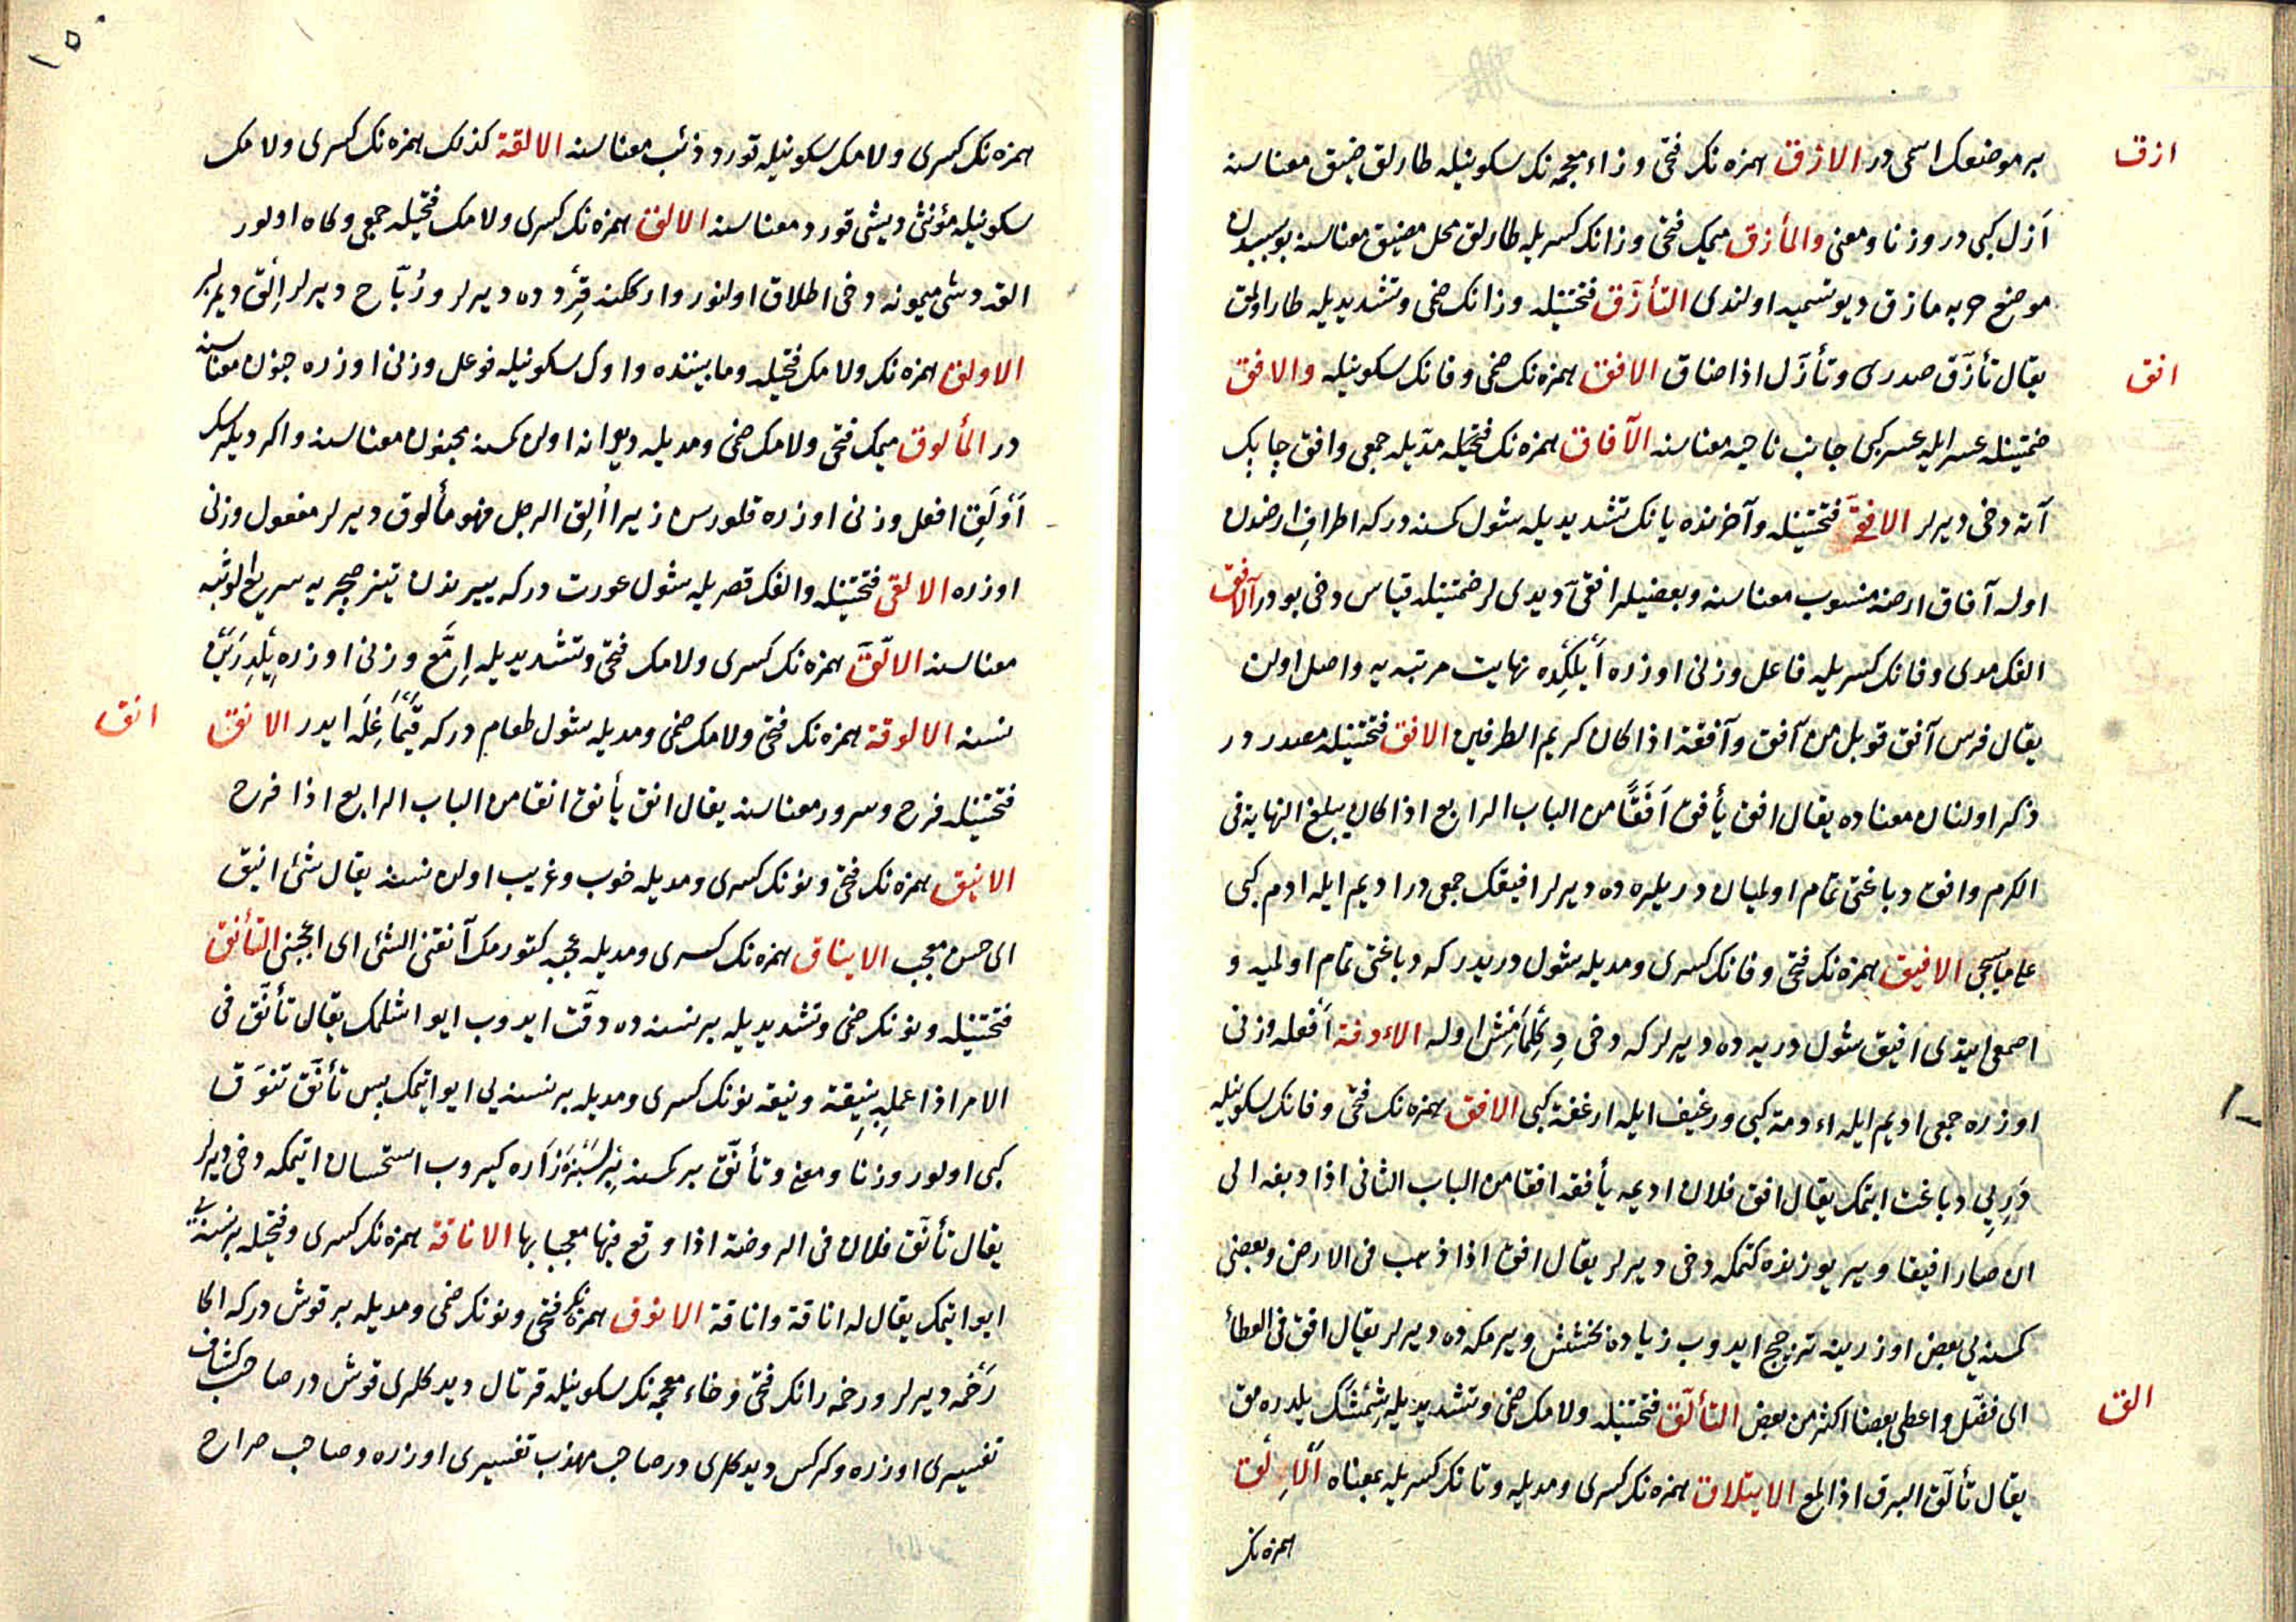 ازق
بر موضعك اسمی در الازق همزه نك فتحی وزاء معجمه نك سكونیله طارلق ضیق معناسنه
أزل كبی در وزنا ومعنی والمأزق میمك فتحی وزانك كسریله طارلق محل مضیق معناسنه بو سببدن
موضع حربه مازق دیو تسمیه اولندی التأزّق فتحتینله وزانك ضمی وتشدیدیله طار اولمق
افق
یقال تأزّق صدری وتأزّل اذا ضاق الافق همزه نك ضمی وفانك سكونیله والافق
ضمتینله عسر ایله عسر كبی جانب ناحیه معناسنه الآفاق همزه نك فتحیله مدّیله جمعی وافق چابك
آته دخی دیرلر الافقیّ فتحتینله وآخرنده یانك تشدیدیله شول كسنه در كه اطراف ارضدن
اوله آفاق ارضه منسوب معناسنه وبعضیلر افقیّ دیدیلر ضمتینله قیاس دخی بودر الآفق
الفك مدی وفانك كسریله فاعل وزنی اوزره نهایت مرتبه یه واصل اولن
یقال فرس آفق قوبل من آفق وآفقة اذا كان كریم الطرفین الافق فتحتینله مصدر در
ذكر اولنان معناده یقال افق یأفق أفقًا من الباب الرابع اذا كان یبلغ النهایة فی
الكرم وافق دباغتی تمام اولمیان دریلره ده دیرلر افیقك جمعی در ادیم ایله ادم كبی
الافیق همزه نك فتحی وفانك كسری ومدیله شول دریدر كه دباغتی تمام اولمیه و
اصمعی ایتدی افیق شول دریه ده دیرلر كه دخی دكلمامش اوله الاءدفة أفعله وزنی
اوزره جمعی ادیم ایله اءدمة كبی ورغیف ایله ارغفة كبی الافق همزه نك فتحی وفانك سكونیله
دریی دباغت ایتمك یقال افق فلان ادیمه یأفقه افقا من الباب الثانی اذا دبغه الی
ان صار افیقا ویر یوزنده كتمكه دخی دیرلر یقال افق اذا ذهب فی الارض وبعضی
كمسنه یی بعض اوزرینه ترجیح ایدوب زیاده بخشش ویرمكه ده دیرلر یقال افق فی العطاء
الق
ای فضّل واعطی بعضا اكثر من بعض التألّق فتحتینله ولامك ضمی وتشدیدیله شمشك یلدره مق
یقال تألّق البرق اذا لمع الایتلاق همزه نك كسری ومدیله وتانك كسریله بمعناه الإلق
همزه نك
١٥
همزه نك كسری ولامك سكونیله قورد ذئب معناسنه الالقة كذلك همزه نك كسری ولامك
سكونیله مؤنثی دیشی قورد معناسنه الالق همزه نك كسری ولامك فتحیله جمعی وكاه اولور
القه دیشی میمونه دخی اطلاق اولنور وارككنه قرده ده دیرلر وربّاح دیرلر إلق دیمزلر
الاولق همزه نك ولامك فتحیله وما بیننده واوك سكونیله فوعل وزنی اوزره جنون معناسنه
در المألوق میمك فتحی ولامك ضمی ومدیله دیوانه اولن كمسنه مجنون معناسنه واكر دیلرسك
أولق افعل وزنی اوزره قلورسن زیرا ألق الرجل فهو مألوق دیرلر مفعول وزنی
اوزره الالقی فتحتینله والفك قصریله شول عورت در كه ییرندن تیز صچریه سریع الوثبه
معناسنه الالّق همزه نك كسری ولامك فتحی وتشدیدیله إمّع وزنی اوزره یلدریین
انق
نسنه الالوقة همزه نك فتحی ولامك ضمی ومدیله شول طعام در كه قیماغله ایدر الانق
فتحتینله فرح وسرور معناسنه یقال انق یأنق انقا من الباب الرابع اذا فرح
الانیق همزه نك فتحی ونونك كسری ومدیله خوب وغریب اولن نسنه یقال شئ انیق
ای حسن معجب الایناق همزه نك كسری ومدیله عجبه كتورمك آنقنی الشئ ای اعجبنی التأنق
فتحتینله ونونك ضمی وتشدیدیله بر نسنه ده دقّت ایدوب ایو اشلمك یقال تأنّق فی
الامر اذا عمله بنیقة ونیقه نونك كسری ومدیله بر نسنه یی ایو ایتمك پس تأنّق تنوّق
كبی اولور وزنا ومعنی وتأنّق بر كمسنه بر سبزه زاره كیروب استحسان ایتمكه دخی دیرلر
یقال تأنّق فلان فی الروضة اذا وقع فیها معجبا بها الاناقة همزه نك كسری وفتحیله بر نسنه یی
ایو ایتمك یقال له اناقة واناقة الانوق همزه نك فتحی ونونك ضمی ومدیله بر قوش در كه اكا
رخمه دیرلر ورخمه رانك فتحی وخاء معجمه نك سكونیله قرتال دیدكلری قوش در صاحب كشاف
تفسیری اوزره وكركس دیدكلری در صاحب مهذب تفسیری اوزره وصاحب صراح